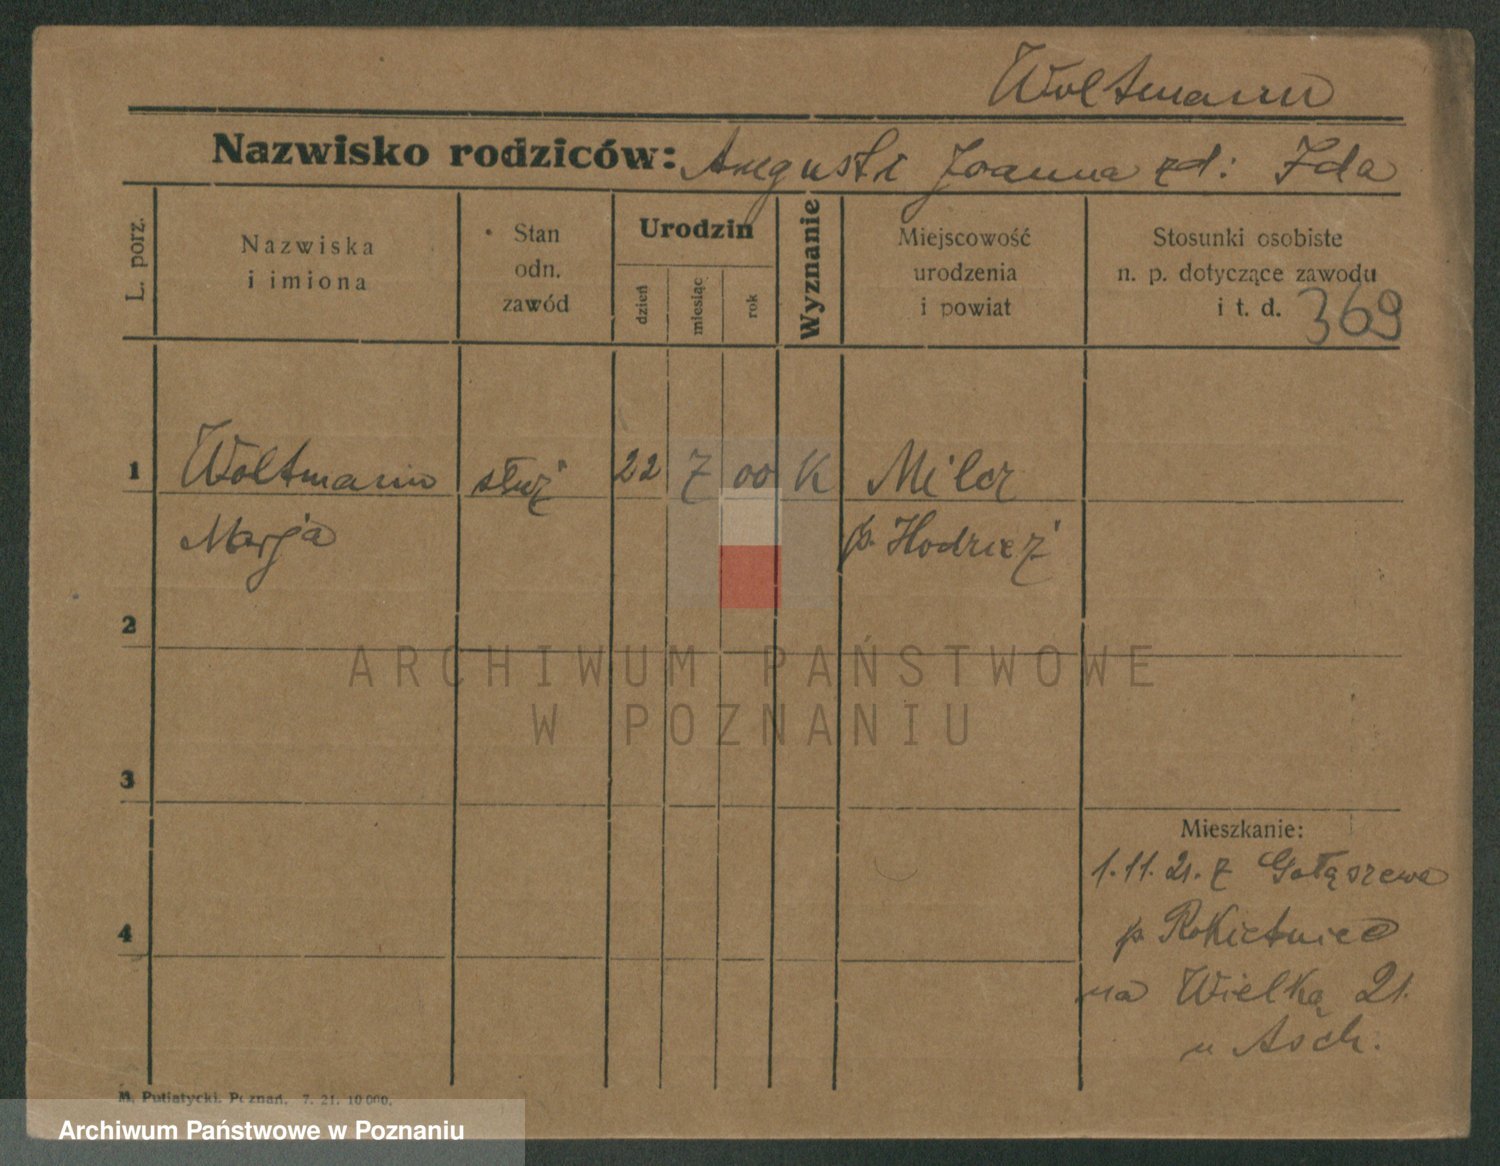 Woltmann
Nazwisko rodziców: August i Joanna zd: Ida
L. porz.
Nazwiska
i imiona
Stan
odn.
zawód
Urodzin
dzień
miesiąc
rok
Wyznanie
Miejscowość
urodzenia
i powiat
Stosunki osobiste
n. p. dotyczące zawodu
i t. d. 369
1 Woltmann służ 22 7 00 K Milcz
Marja p. Hodzież
2
ARCHIWUM PAŃSTWOWE
W POZNANIU
3
Mieszkanie:
1.11.21. z Gołąszewa
4 p. Rokietnica
na Wielką 21.
u Asch.
M. Putiatycki, Poznań. 7. 21. 10 000.
Archiwum Państwowe w Poznaniu